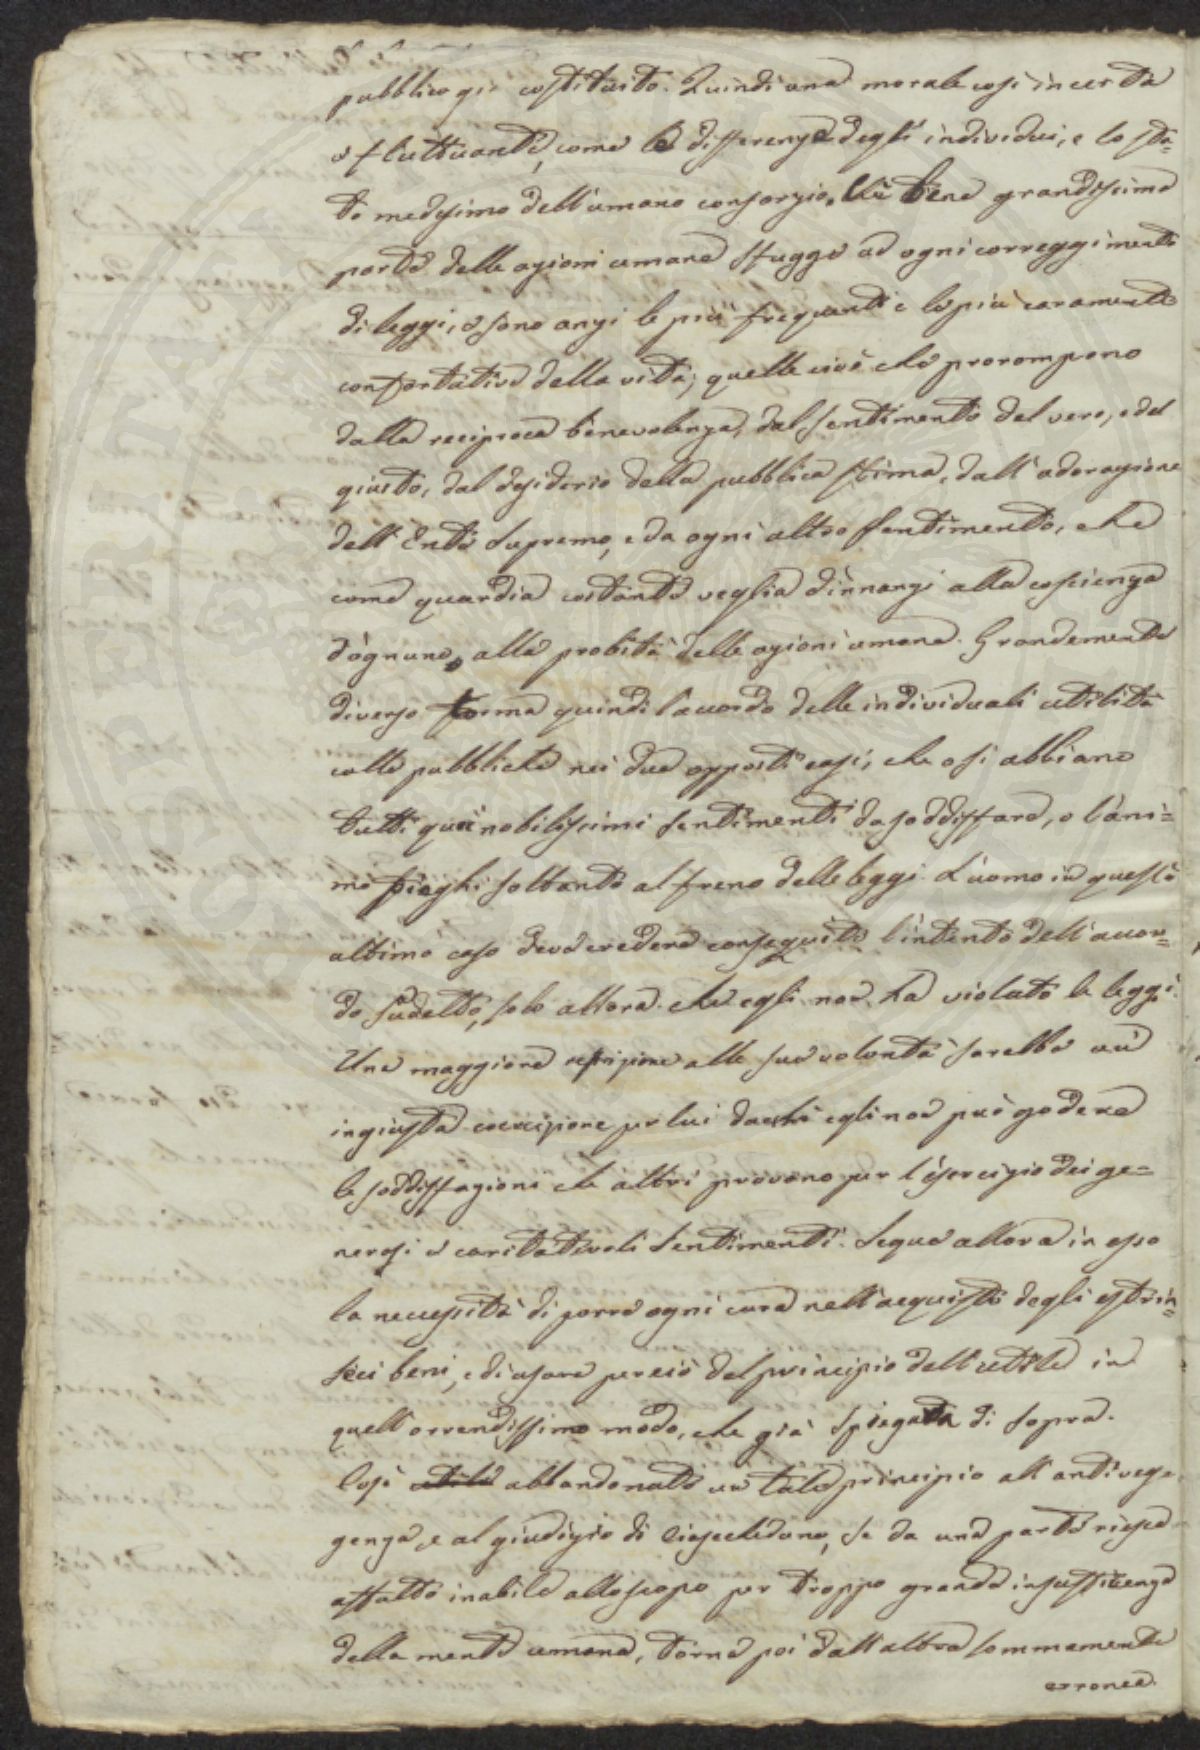 pubblico già costituito. Quindi una morale così incerta
e fluttuante, come le differenze degli individui, e lo sta=
to medesimo dell'umano consorzio. Chè bene grandissima
parte delle azioni umane sfugge ad ogni correggimento
di leggi, e sono anzi le più frequenti e le più caramente
confortative della vita; quelle cioè che prorompono
dalla reciproca benevolenza, dal sentimento del vero, e del
giusto, dal desiderio della pubblica stima, dall'adorazione
dell'Ente Supremo, e da ogni altro sentimento, che
come guardia costante veglia dinnanzi alla coscienza
d'ognuno, alla probità delle azioni umane. Grandemente
diverso torna quindi l'accordo delle individuali utilità
colle pubbliche nei due opposti casi, che o si abbiano
tutti quei nobilissimi sentimenti da soddisfare, o l'ani=
mo pieghi soltanto al freno delle leggi. L'uomo in questo
ultimo caso deve credere conseguito l'intento dell'accor=
do sudetto, solo allora che egli non ha violato le leggi.
Una maggiore restrizione alle sue volontà sarebbe un
ingiusta coercizione per lui dacchè egli non può godere
le soddisfazioni che altri provano per l'esercizio dei ge=
nerosi e caritatevoli sentimenti. Segue allora in esso
la necessità di porre ogni cura nell'acquisto degli estrin=
seci beni, e di usare perciò del principio dell'utile in
quell'orrendissimo modo, che già spiegata di sopra.
Così utile abbandonato un tale principio all'antiveg=
genza, e al giudizio di ciascheduno, se da una parte riesce
affatto inabile allo scopo per troppo grande insufficienza
della mente umana, torna poi dall'altra sommamente
erronea.